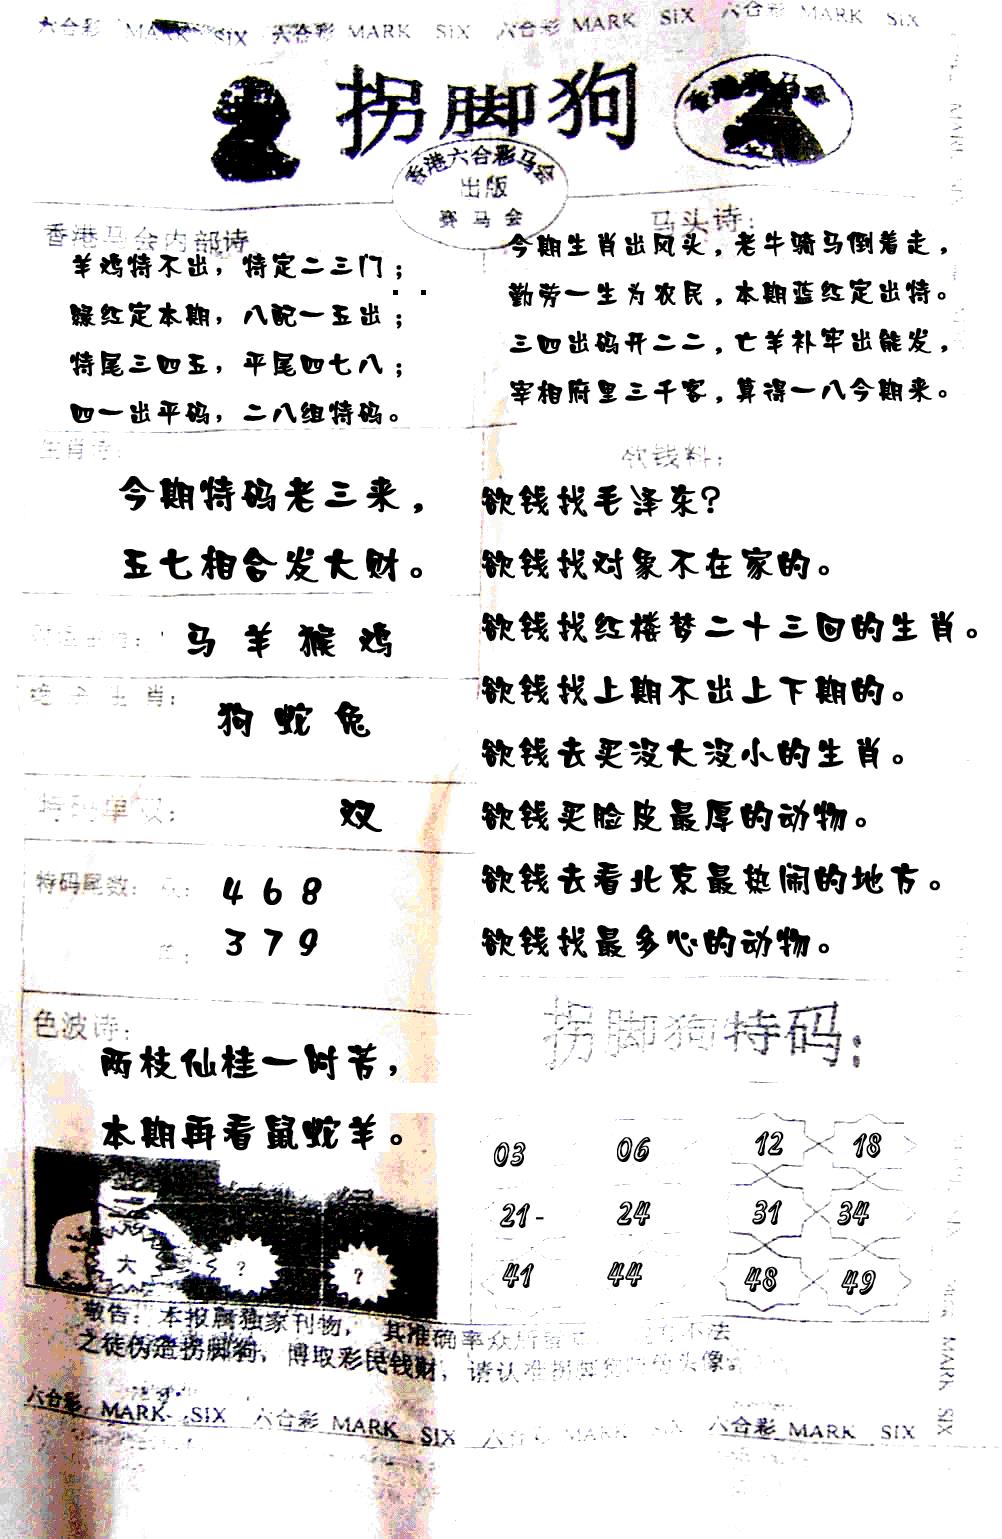 六合彩 MARK SIX 六合彩 MARK SIX 六合彩 MARK SIX 六合彩 MARK SIX
拐脚狗
香港六合彩马会
出版
赛马会
香港马会内部诗
羊鸡特不出，特定二三门；
绿红定本期，八配一五出；
特尾三四五，平尾四七八；
四一出平码，二八组特码。
马头诗：
今期生肖出风头，老牛骑马倒着走，
勤劳一生为农民，本期蓝红定出特。
三四出码开二二，亡羊补牢出能发，
宰相府里三千客，算得一八今期来。
生肖诗：
今期特码老三来，
五七相合发大财。
马 羊 猴 鸡
绝杀生肖：
狗 蛇 兔
特码单双：
双
特码尾数：
4 6 8
3 7 9
色波诗：
两枝仙桂一时芳，
本期再看鼠蛇羊。
大 ? ?
欲钱料：
欲钱找毛泽东？
欲钱找对象不在家的。
欲钱找红楼梦二十三回的生肖。
欲钱找上期不出上下期的。
欲钱去买没大没小的生肖。
欲钱买脸皮最厚的动物。
欲钱去看北京最热闹的地方。
欲钱找最多心的动物。
拐脚狗特码：
03 06 12 18
21- 24 31 34
41 44 48 49
敬告：本报属独家刊物，其准确率众所 不法
之徒伪造拐脚狗，博取彩民钱财，请认准拐脚狗 头像。
六合彩 MARK SIX 六合彩 MARK SIX 六合彩 MARK SIX 六合彩 MARK SIX
MARK SIX